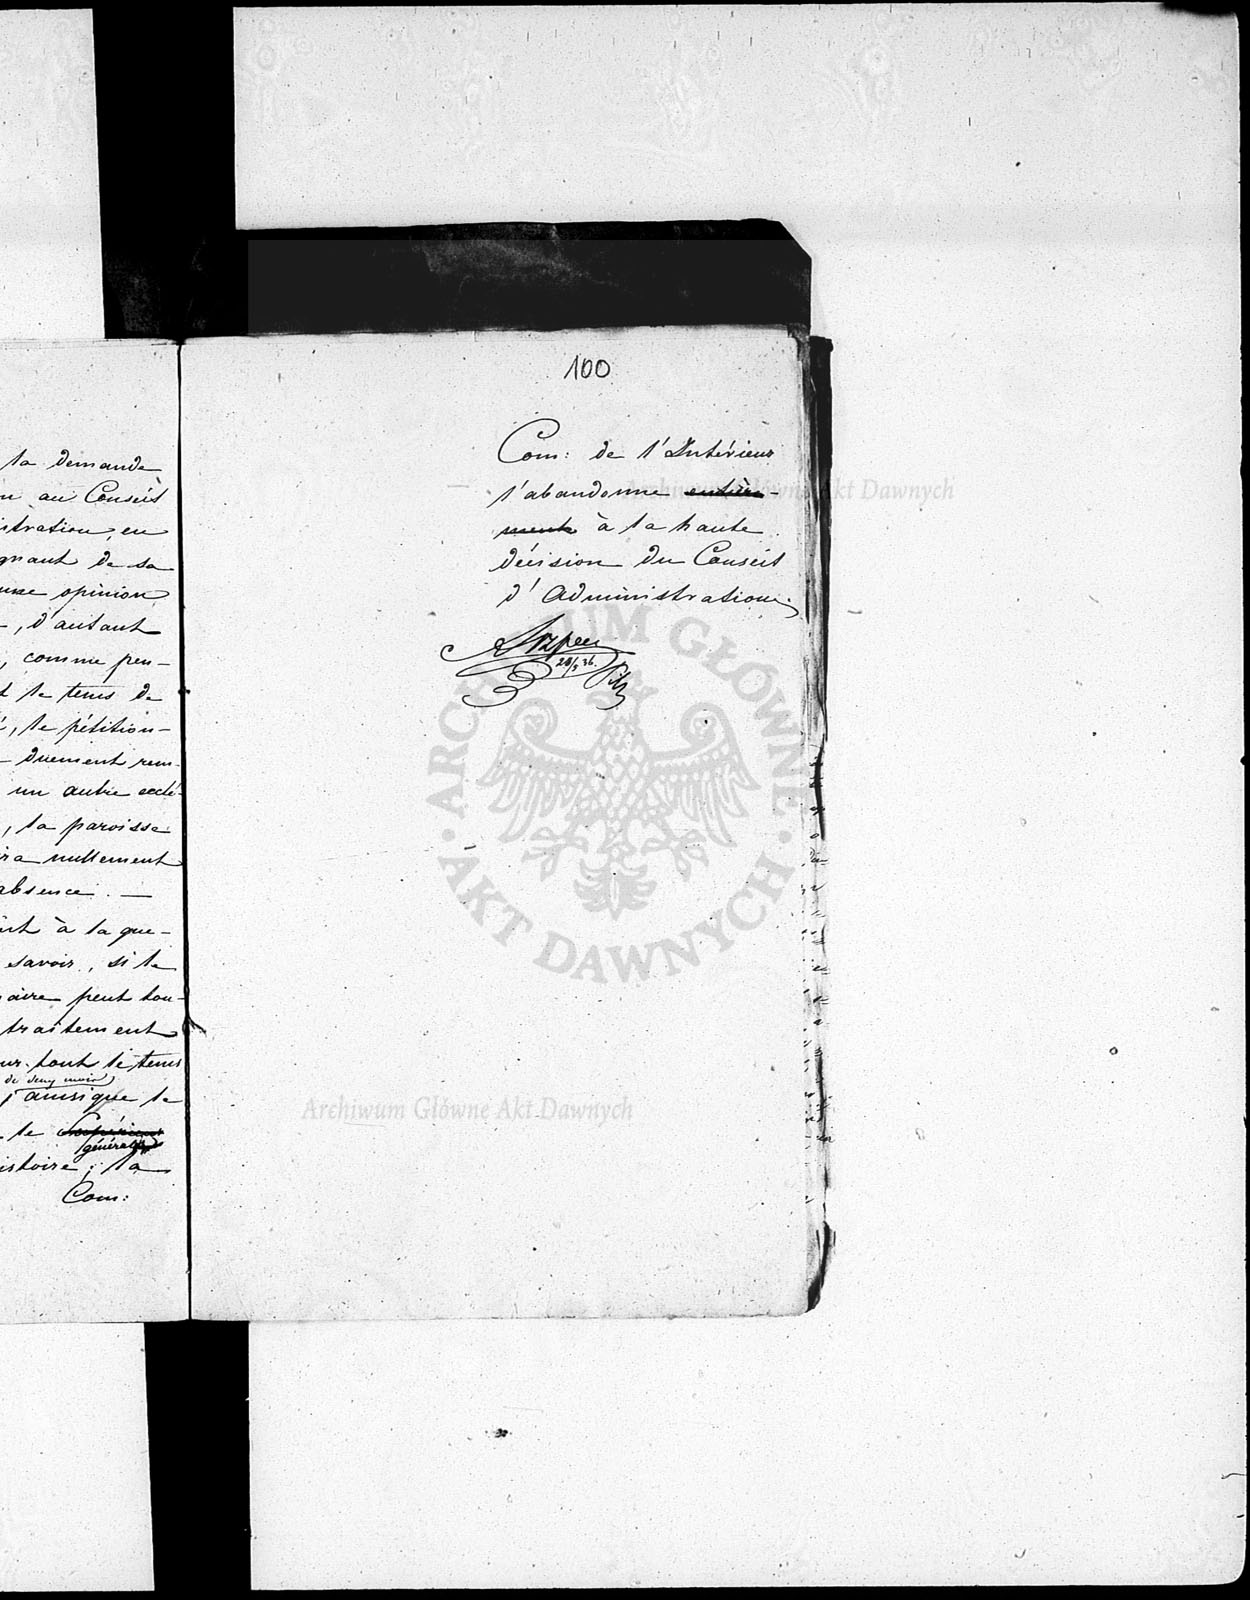 la demande
au Conseil
istration, en
gnant de sa
opinion
-, d'autant
, comme pen-
le tems de
, le pétition-
- duement rem-
un autre ecclé-
, la paroisse
ra nullement
absence. —
à la que-
savoir, si le
aire peut tou-
traitement
tout le tems
de deux mois
, ainsi que le
le Supérieur
général
istoire; la
Com:
100
Com: de l'Intérieur
l'abandonne entière-
ment à la haute
décision du Conseil
d'Administration.
28/3 36.
Archiwum Główne Akt Dawnych
ARCHIWUM GŁÓWNE
· AKT DAWNYCH ·
Archiwum Główne Akt Dawnych